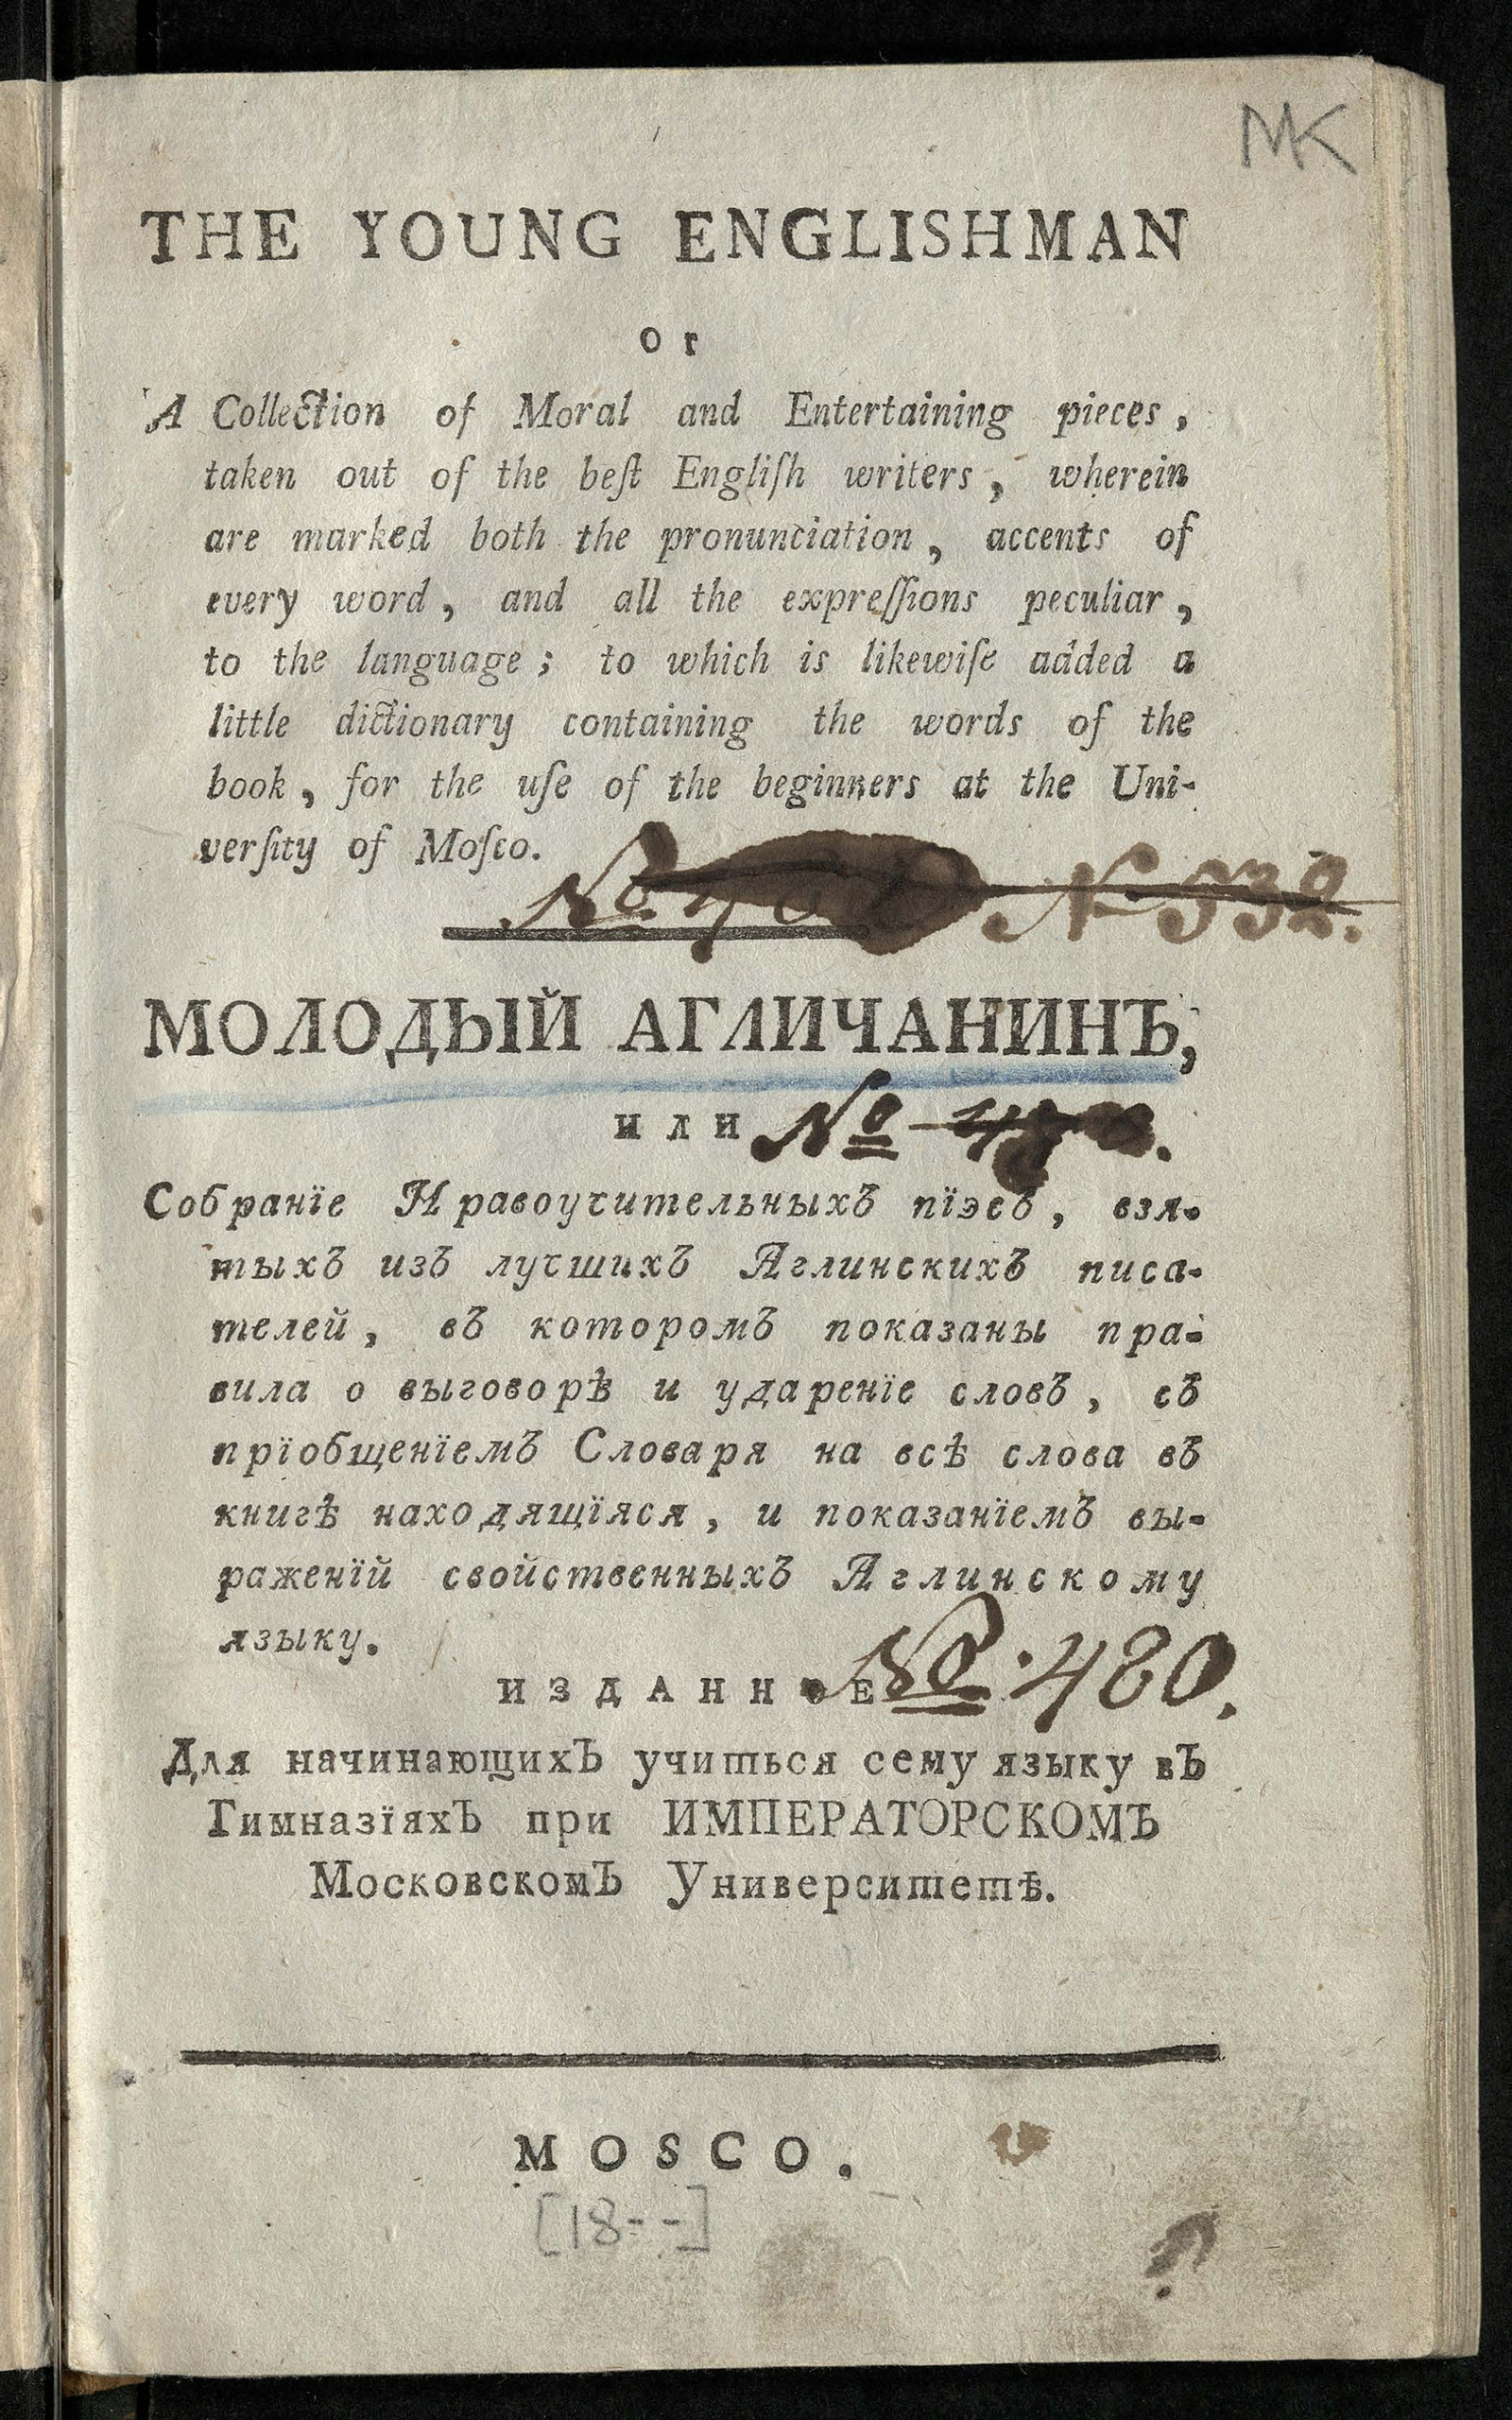 MK
THE YOUNG ENGLISHMAN
or
A Collection of Moral and Entertaining pieces,
taken out of the beſt Engliſh writers, wherein
are marked both the pronunciation, accents of
every word, and all the expreſſions peculiar,
to the language; to which is likewiſe added a
little dictionary containing the words of the
book, for the uſe of the beginners at the Uni-
verſity of Moſco.
№ N 532.
МОЛОДЫЙ АГЛИЧАНИНЪ,
или №
Собранїе Нравоучительныхъ пїэсъ, взя-
тыхъ изъ лучшихъ Аглинскихъ писа-
телей, въ которомъ показаны пра-
вила о выговорѣ и ударенїе словъ, съ
прїобщенїемъ Словаря на всѣ слова въ
книгѣ находящїяся, и показанїемъ вы-
раженїй свойственныхъ Аглинскому
языку.
ИЗДАННОЕ №. 480.
Для начинающихЪ учиться сему языку вЪ
ГимназїяхЪ при ИМПЕРАТОРСКОМЪ
МосковскомЪ Университетѣ.
MOSCO.
[18--]